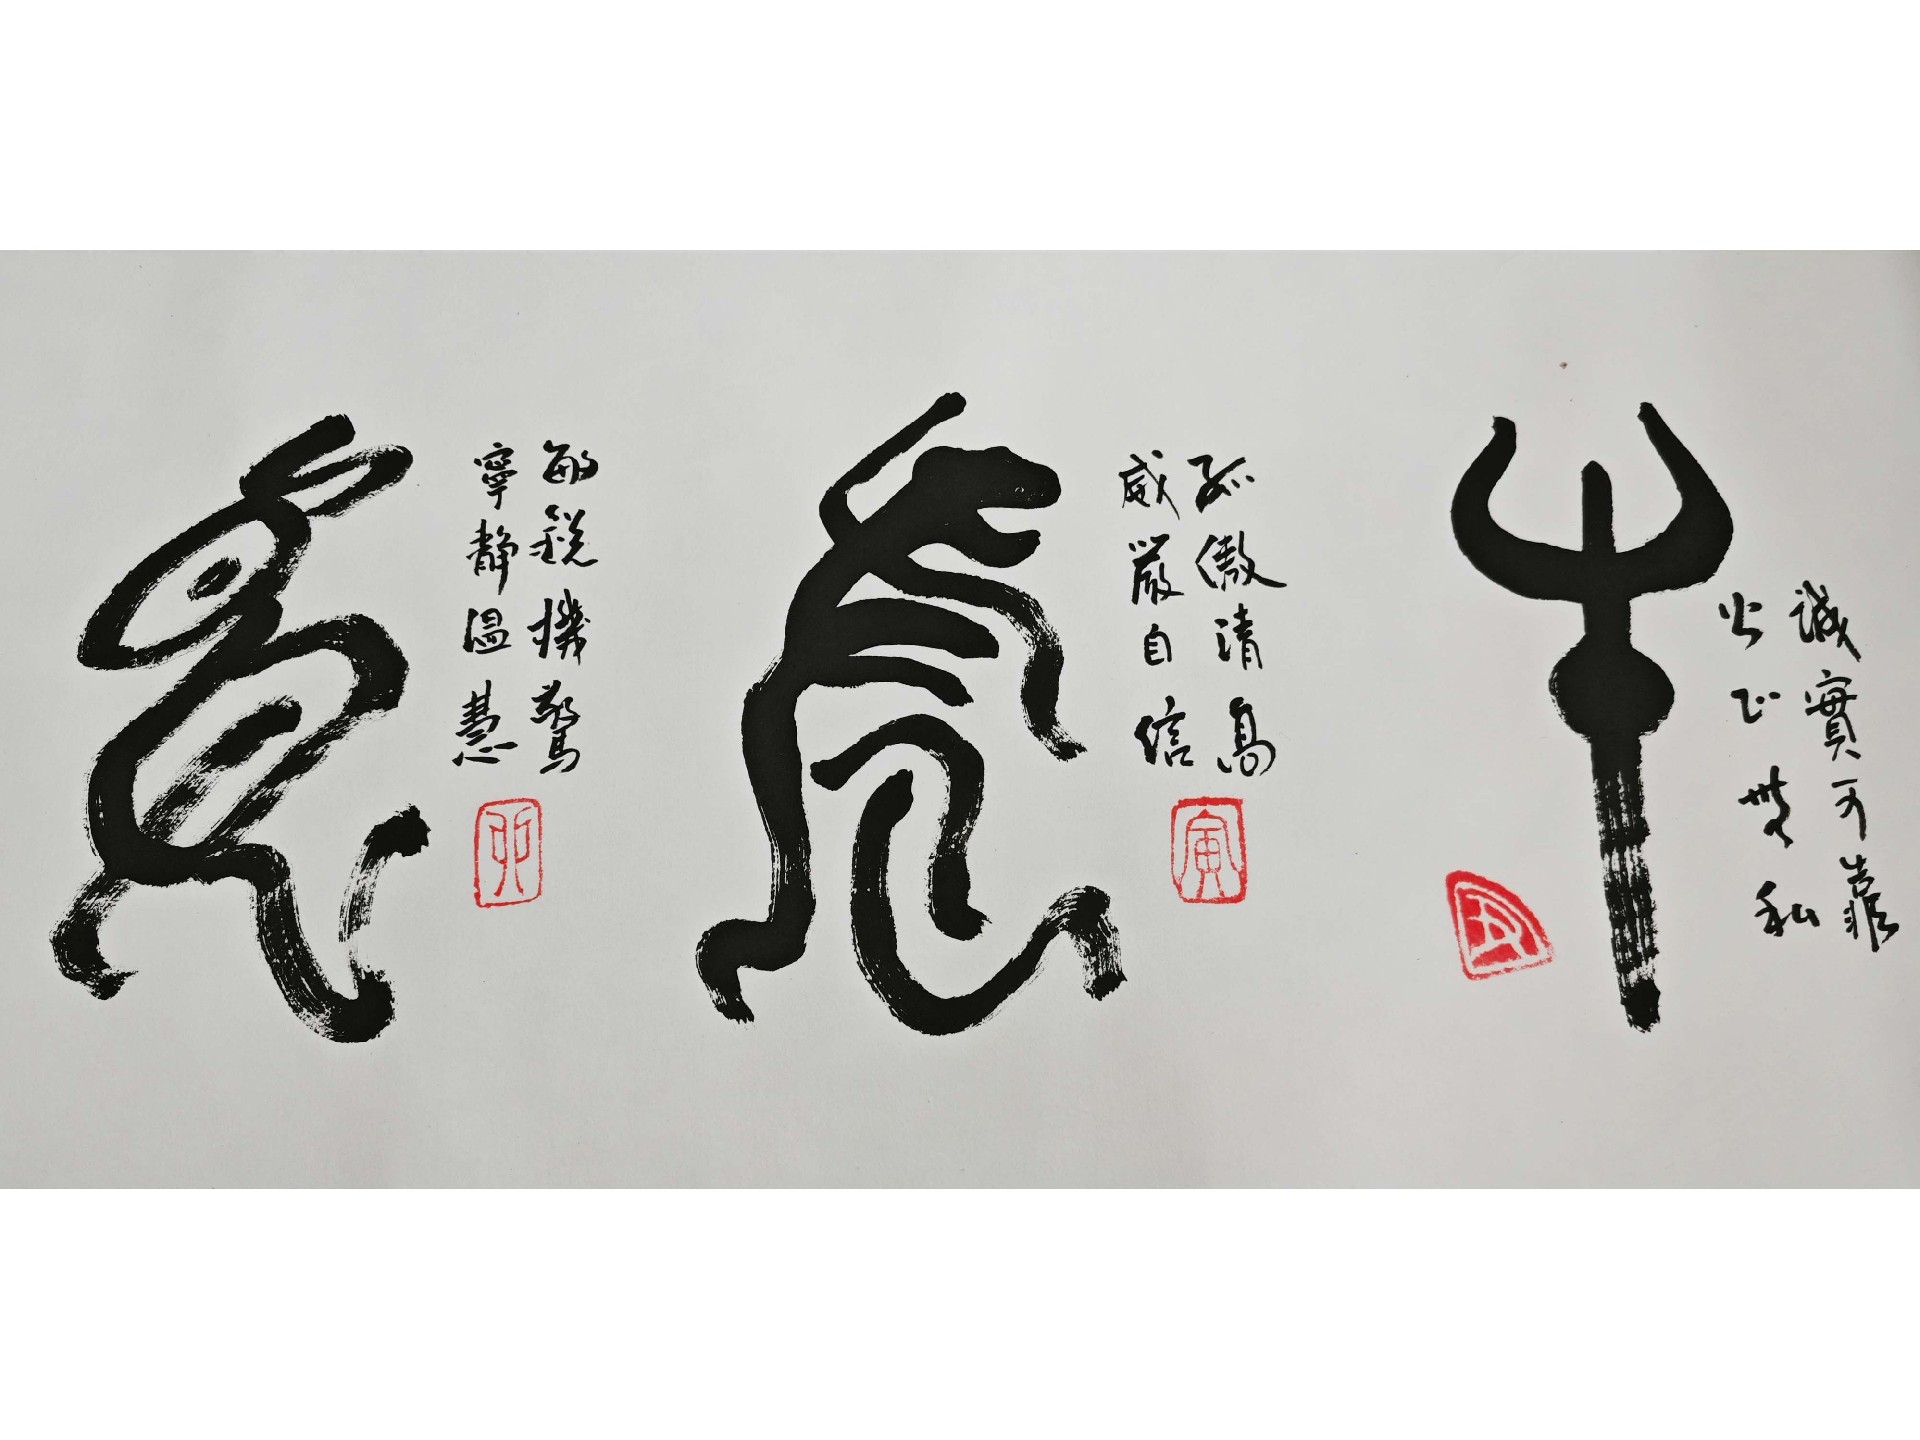 牛
誠實可靠
公正無私
丑
虎
孤傲清高
威嚴自信
寅
兔
敏銳機驚
寧靜溫慧
卯